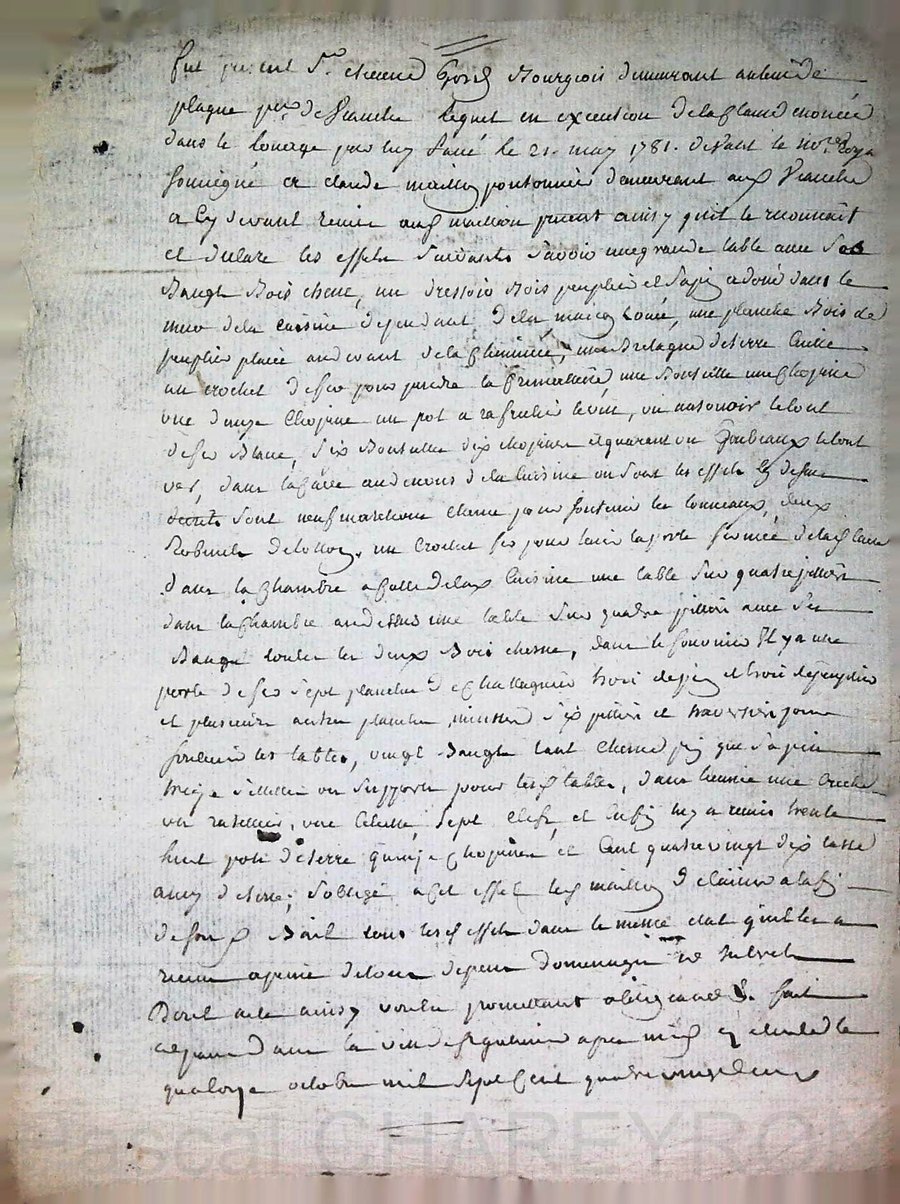 fut present Sr. etienne bourgeois demeurant au lieu de
plague psse. de lequel en execution de la clause enoncée
dans le louage par luy passé le 21. may 1781. devant le nore. Roya
soussigné a claude mailhon pontonnier demeurant aux
a cy devant remis aud mailhon present ainsy qu'il le reconnait
et declare les effets suivants savoir une grande table avec ses
Bangs Bois chene, un dressoir Bois peuplier et sapin adossé dans le
mur de la cuisine dependant de la maison louée, une planche Bois de
peuplier placée au devant de la cheminée, une Bretagne de terre cuitte
un crochet de fer pour pendre la une Bouteille une chopine
une demye chopine un pot a rafraichir le vin, un le tout
de fer Blanc, six Bouteilles dix chopines et quarente un Goubeaux le tout
ver, dans la cave au dessous de la cuisine ou sont les effets cy dessus
sont neuf marchons chene pour soutenir les tonneaux, deux
Robinets de lotton, un crochet fer pour tenir la porte fermée de la cave
dans la chambre a costé de la cuisine une table sur quatre pilliers
dans la chambre au dessus une table sur quatre pilliers avec ses
Bangs toutes les deux Bois chesne, dans le Il y a une
porte de fer sept planches de chattagnier trois de pin et trois de peuplier
et plusieurs autres planches minces six pilliers et traversiers pour
soutenir les tables, vingt Bangs tant chesne pin que sapin
treize ou supports pour lesd tables, dans une
un ratellier, une sept clefs, et enfin luy a remis trente
huit pots de terre quinze chopines et cent quatre vingt dix tasse
aussy de terre; s'oblige a cet effet led mailhon de laisser a la fin
de son d Bail tous lesd effets dans le meme etat qu'il les a
recus a peine de tous depens dommages et interets
Dont acte ainsy voulu promettant obligeant &. fait
et passé dans la ville de apres midy et clos le
quatorze octobre mil sept cent quatre vingt deux
Pascal CHAREYRON